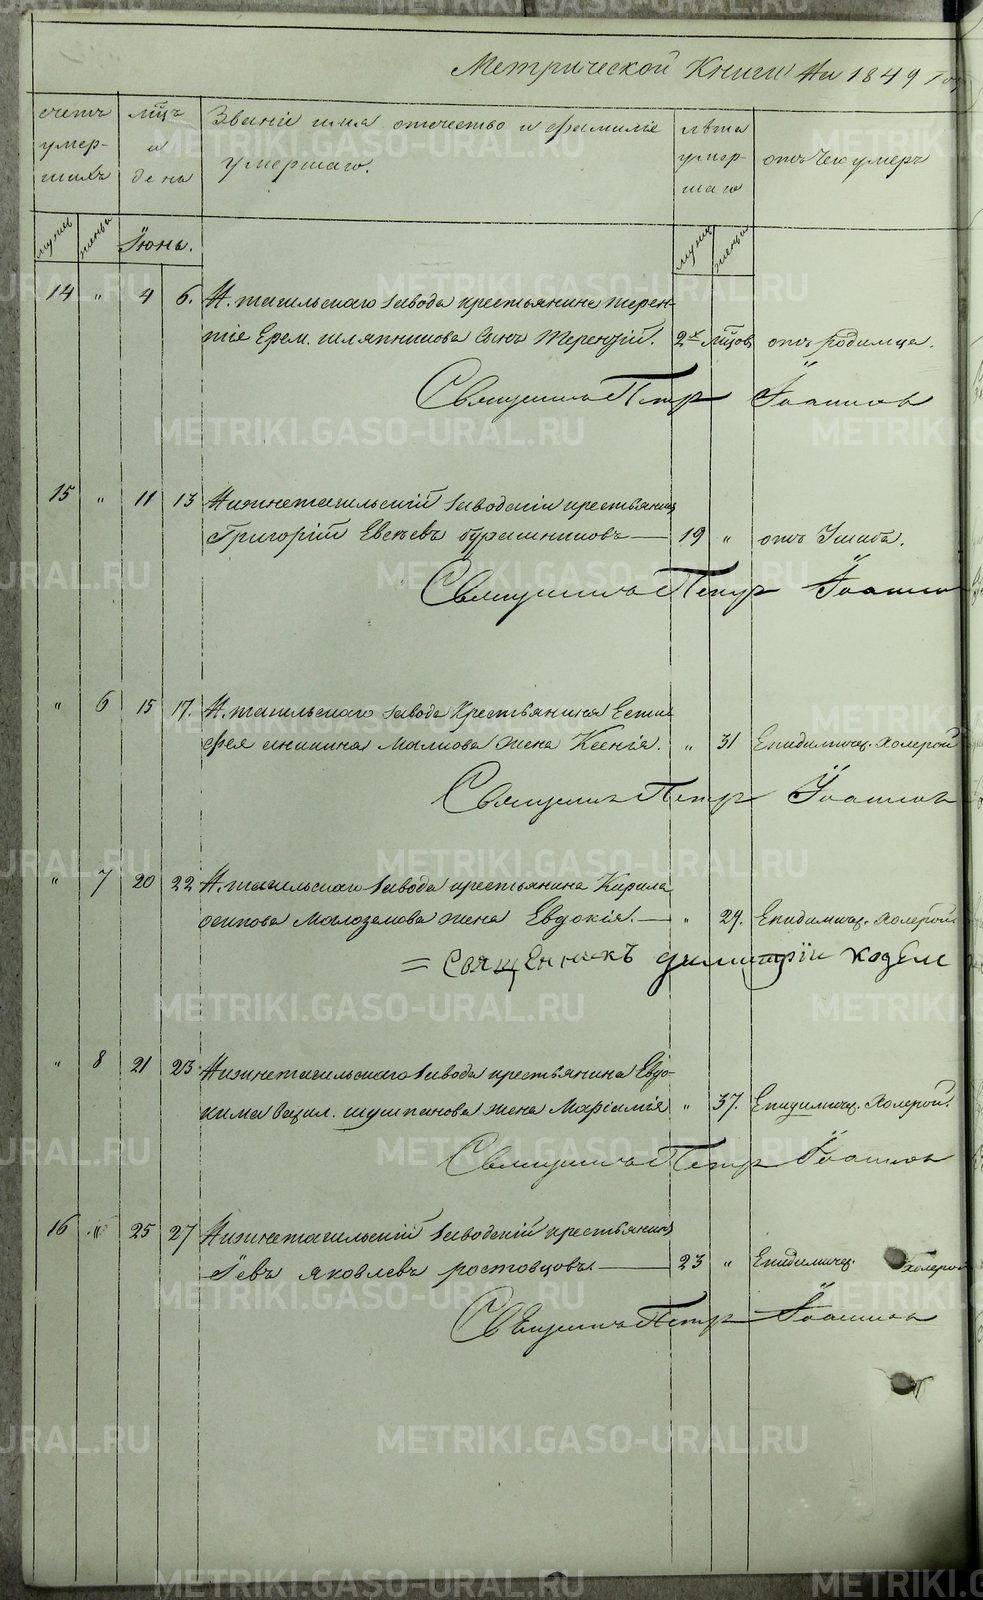 Метрической Книги на 1849 год
счетъ умер- шихъ
мцъ и день
Званіе имя отчество и фамиліе умершаго.
лѣта умер- шаго
отъ чего умеръ
мужес женьс Іюнь. мужес женьс
14 " 4 6. Н. тагильскаго завода крестьянина терен-
тіе Ерем. шляпникова сынъ Терентій. 2х мцов отъ родимца.
Священникъ Петръ Іоанновъ
15 " 11 13 Нижнетагильскій заводскій крестьянинъ
Григорій Евсѣевъ бурашниковъ — 19 " отъ Ушиба.
Священникъ Петръ Іоаннов
" 6 15 17. Н. тагильскаго завода Крестьянина Естиг
фея аникина Малкова жена Ксенія. " 31 Епидимич. холерой
Священникъ Петръ Іоанновъ
" 7 20 22 Н. тагильскаго завода крестьянина Кирила
осипова Малоземова жена Евдокія. — " 29. Епидимич. холерой
= Священникъ димитрій
" 8 21 23 Нижнетагильскаго завода крестьянина Евдо-
кима Вацил. шушпанова жена Маріамія " 37. Епидимич. Холерой.
Священникъ Петръ Іоанновъ
16 " 25 27 Нижнетагильскій заводскій крестьянинъ
Іевъ яковлевъ ростовцовъ. — 23 " Епидимич. холерой
Священникъ Петръ Іоанновъ
METRIKI.GASO-URAL.RU